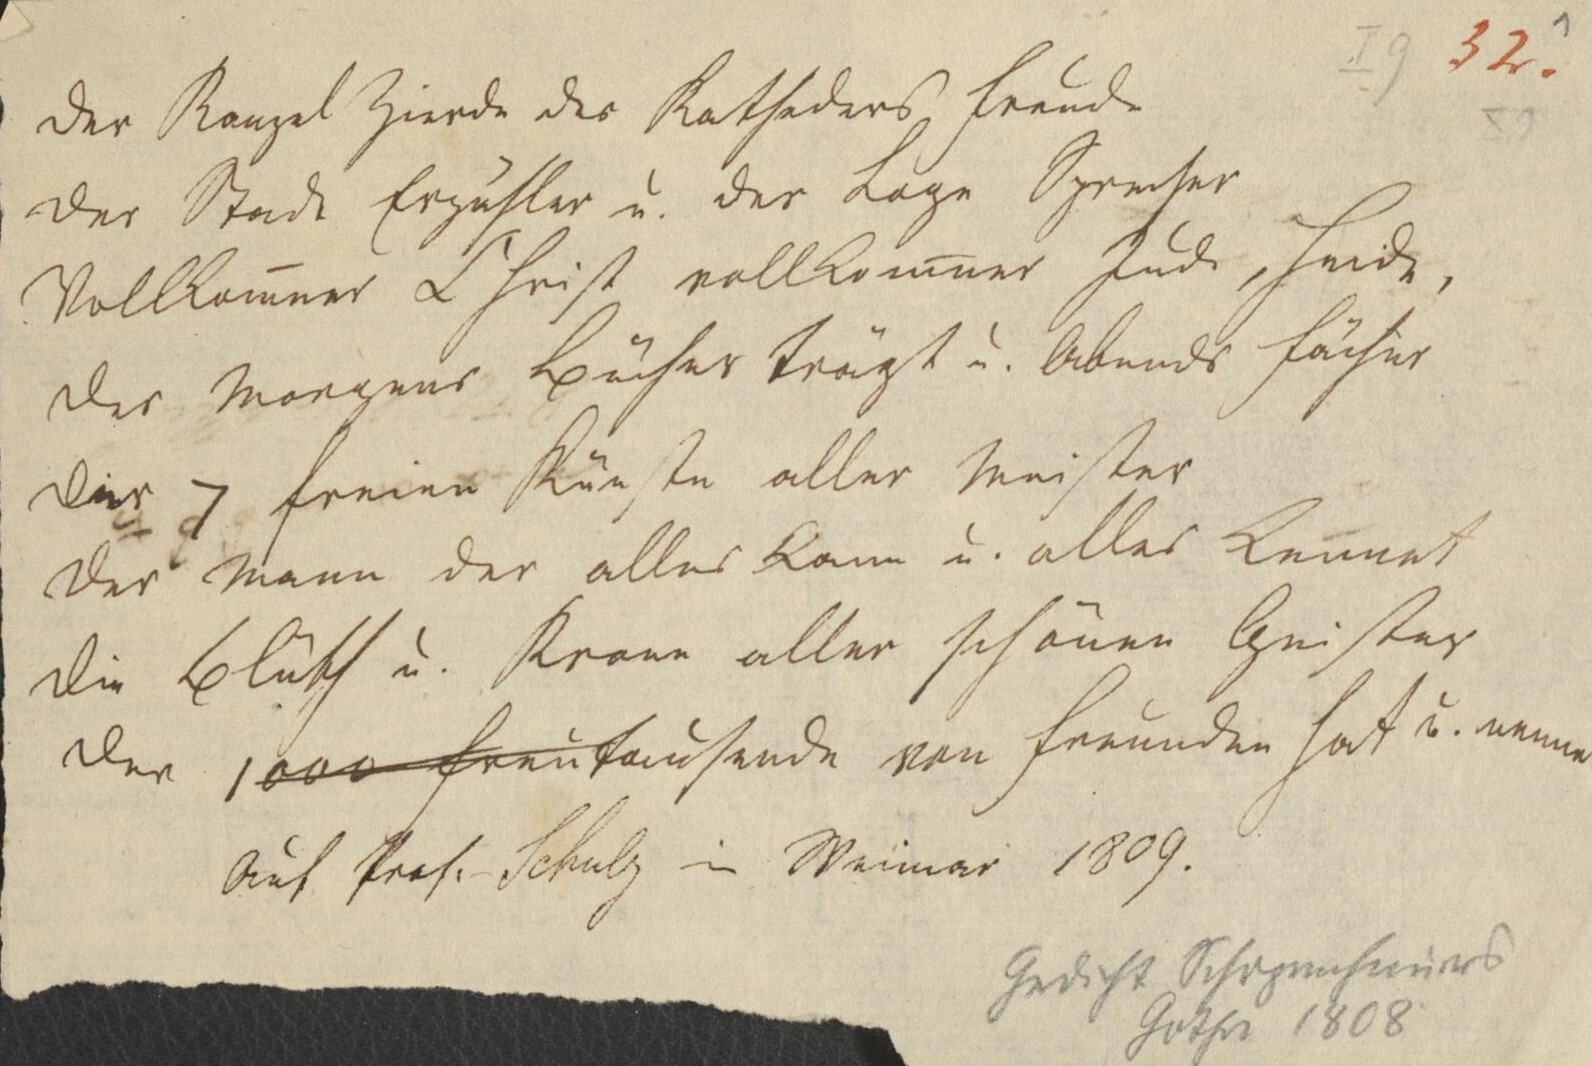 I 9 32. 1
X 9
Der Kanzel Zierde des Katheders Freude
Der Stadt Erzähler u. der Loge Sprecher
Vollkom̅ner Christ vollkom̅ner Jude, Heide,
Der Morgens Bücher trägt u. Abends Fächer
Der 7 freien Künste aller Meister
Der Mann der alles kann u. alles kennet
Die Blüth u. Krone aller schönen Geister
Der 1000 Freu tausende von Freunden hat u. nennet
Auf Prof. Schulz in Weimar 1809.
Gedicht Schopenhauers
Gotha 1808